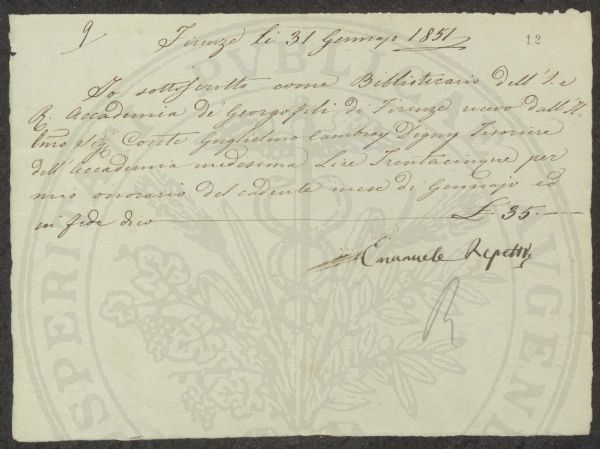 9
Firenze li 31 Gennajo 1851
12
Io sottoscritto come Bibliotecario dell'I. e
R. Accademia de' Georgofili di Firenze ricevo dall'Il-
lmo Sig. Conte Guglielmo Cambray Digny Tesoriere
dell'Accademia medesima Lire Trentacinque per
mio onorario del cadente mese di Gennajo ed
in fede dico £ 35.
Emanuele Repetti
R
PVBLICAE
PROSPERITATI AVGENDAE